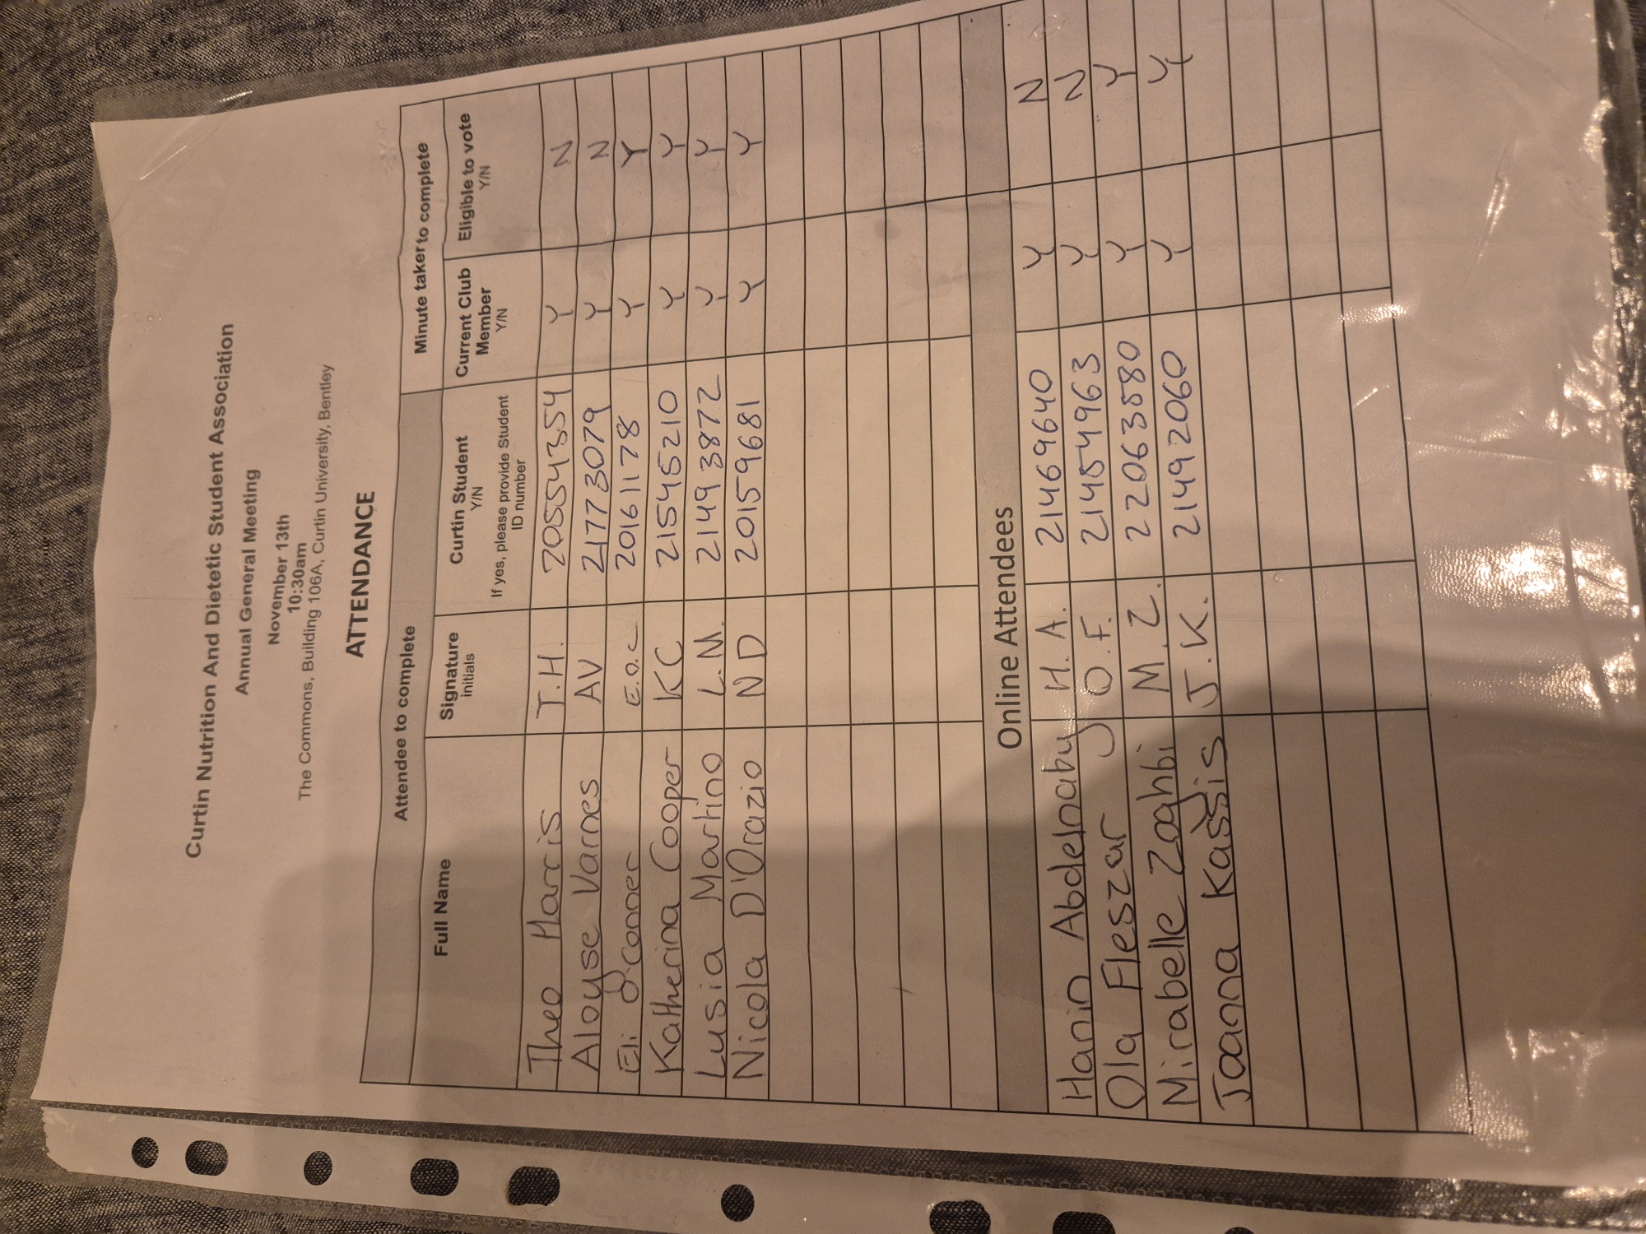 Curtin Nutrition And Dietetic Student Association
Annual General Meeting
November 13th
10:30am
The Commons, Building 106A, Curtin University, Bentley
ATTENDANCE
Attendee to complete Minute taker to complete
Full Name Signature initials Curtin Student Y/N If yes, please provide Student ID number Current Club Member Y/N Eligible to vote Y/N
Theo Harris T.H. 20554354 Y N
Alouyse Varnes AV 21773079 Y N
Eli O'Conner E.O.C 20161178 Y Y
Katherina Cooper KC 21545210 Y Y
Lusia Martino L.M. 21493872 Y Y
Nicola D'Orazio ND 20159681 Y Y
Online Attendees
Hanin Abdelnaby H.A. 21469640 Y N
Ola Fleszar O.F. 21454963 Y N
Mirabelle Zoghbi M.Z. 22063580 Y Y
Joanna Kassis J.K. 21492060 Y Y